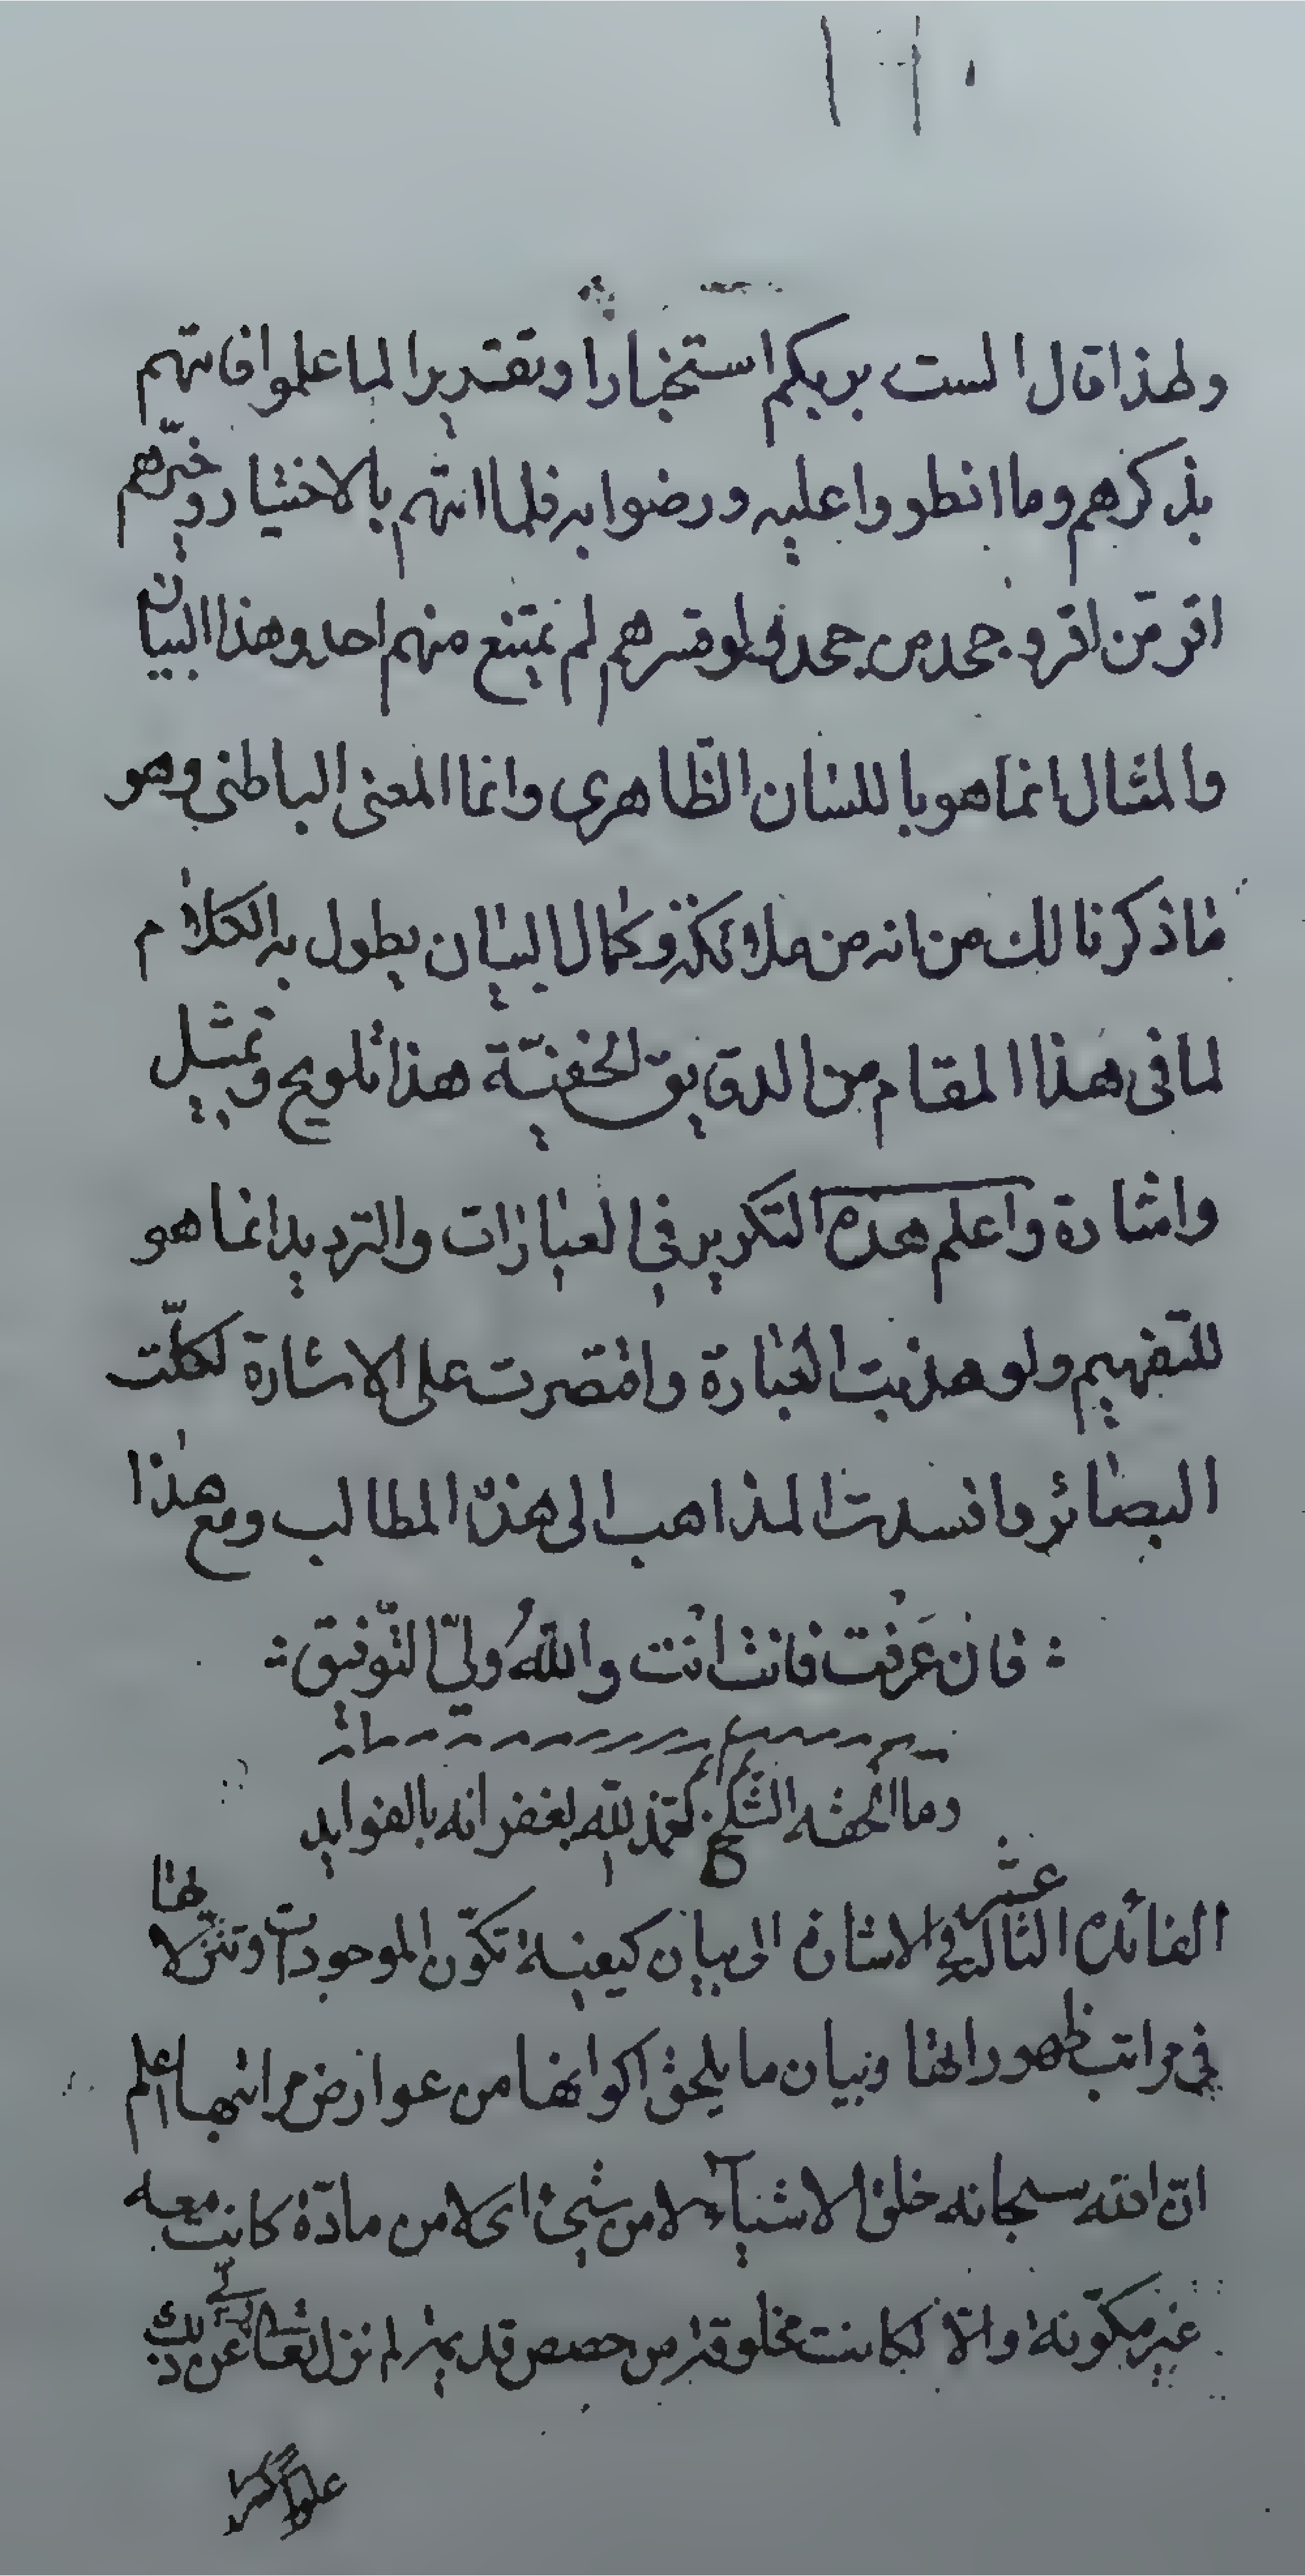 ولهذا قال الست بربكم استخبارا وتقديرا لما علموا فاتتهم
بذكرهم وما انطووا عليه ورضوا به فلما اتتهم بالاختيار وخيّرهم
اقر من اقر وجحد من جحد فلو قسرهم لم يمتنع منهم احد وهذا البيان
والمثال انما هو باللسان الظّاهري وانما المعنى الباطني وهو
ماذكرنا لك من انه من ملائكته وكمال البيان يطول به الكلام
لما في هذا المقام من الدقايق الخفيّة هذا تلويح وتمثيل
واشارة واعلم هذه التكرير في العبارات والترديد انما هو
للتفهيم ولو هذبت العبارة واقتصرت على الاشارة لكلّت
البصائر وانسدت المذاهب الى هذه المطالب ومع هذا
فان عَرفت فانت انت واللهُ وليّ التّوفيق
ومما الحقه الشيخ تغمذ لله بغفرانه بالفوايد
الفائدة الثالثة عشر في الاشارة الى بيان كيفية تكوّن الموجودات وتنزّلاتها
في مراتب ظهوراتها وبيان ما يلحق اكوانها من عوارض مراتبها اعلم
انّ الله سبحانه خلق الاشيآء لا من شيئ اى لا من مادّة كانت معه
غير مكوّنة والّا لكانت مخلوقة من حصص قديمة لم تزل تعالى ربي عن ذلك
علوا كبيرا